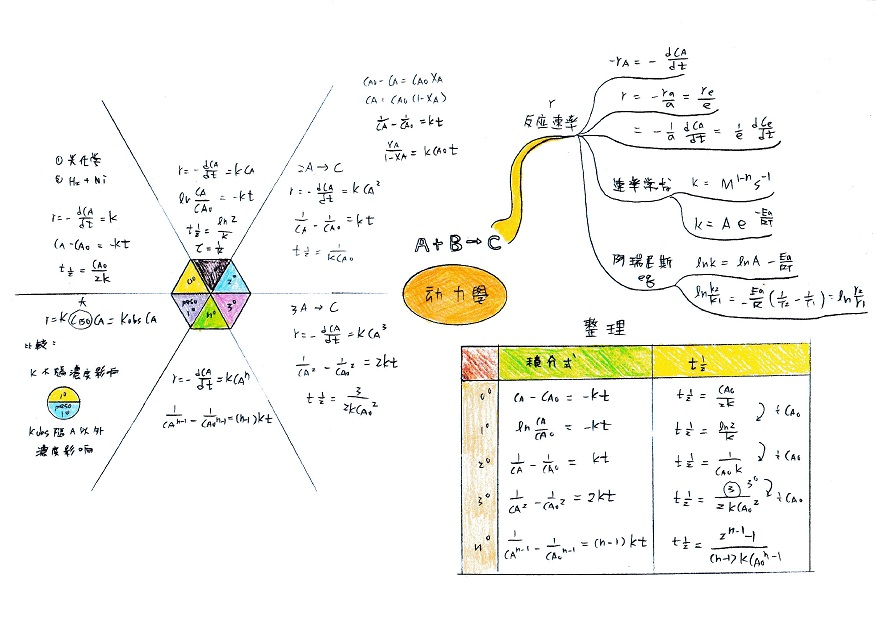 CA0 - CA = CA0 XA
CA = CA0 (1-XA)
1/CA - 1/CA0 = kt
XA/(1-XA) = kCA0t
① 光化學
② H2 + Ni
r = - dCA/dt = k
CA - CA0 = -kt
t½ = CA0/2k
r = - dCA/dt = kCA
ln CA/CA0 = -kt
t½ = ln2/k
τ = 1/k
2A → C
r = - dCA/dt = kCA²
1/CA - 1/CA0 = kt
t½ = 1/kCA0
0°
2°
peso 1°
n°
3°
r = k CB0 CA = kobs CA
比較：
k 不隨濃度影响
1°
peso 1°
kobs 隨 A 以外
濃度影响
r = - dCA/dt = kCAⁿ
1/CAⁿ⁻¹ - 1/CA0ⁿ⁻¹ = (n-1)kt
3A → C
r = - dCA/dt = kCA³
1/CA² - 1/CA0² = 2kt
t½ = 3/2kCA0²
A + B → C
动力學
r
反应速率
-rA = - dCA/dt
r = - ra/a = re/e
= - 1/a dCA/dt = 1/e dCe/dt
速率常数
k = M¹⁻ⁿ s⁻¹
k = A e^(-Ea/RT)
阿瑞尼斯
lnk = lnA - Ea/RT
ln k2/k1 = - Ea/R (1/T2 - 1/T1) = ln r2/r1
整理
積分式
t½
0°
CA - CA0 = -kt
t½ = CA0/2k
t CA0
1°
ln CA/CA0 = -kt
t½ = ln2/k
t CA0
2°
1/CA - 1/CA0 = kt
t½ = 1/CA0 k
t CA0
3°
1/CA² - 1/CA0² = 2kt
t½ = 3/2kCA0²
3°
n°
1/CAⁿ⁻¹ - 1/CA0ⁿ⁻¹ = (n-1)kt
t½ = 2ⁿ⁻¹-1/(n-1)kCA0ⁿ⁻¹